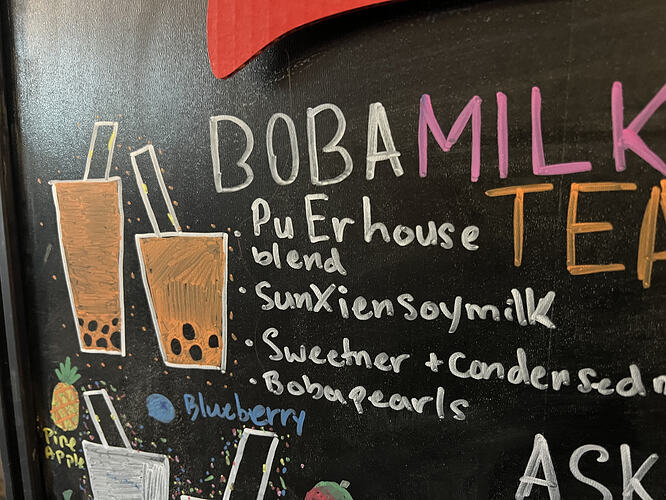 BOBA MILK
TEA
Pu Er house
blend
• SunXien soymilk
• Sweetner + Condensed
• Boba pearls
Blueberry
Pine
Apple
ASK